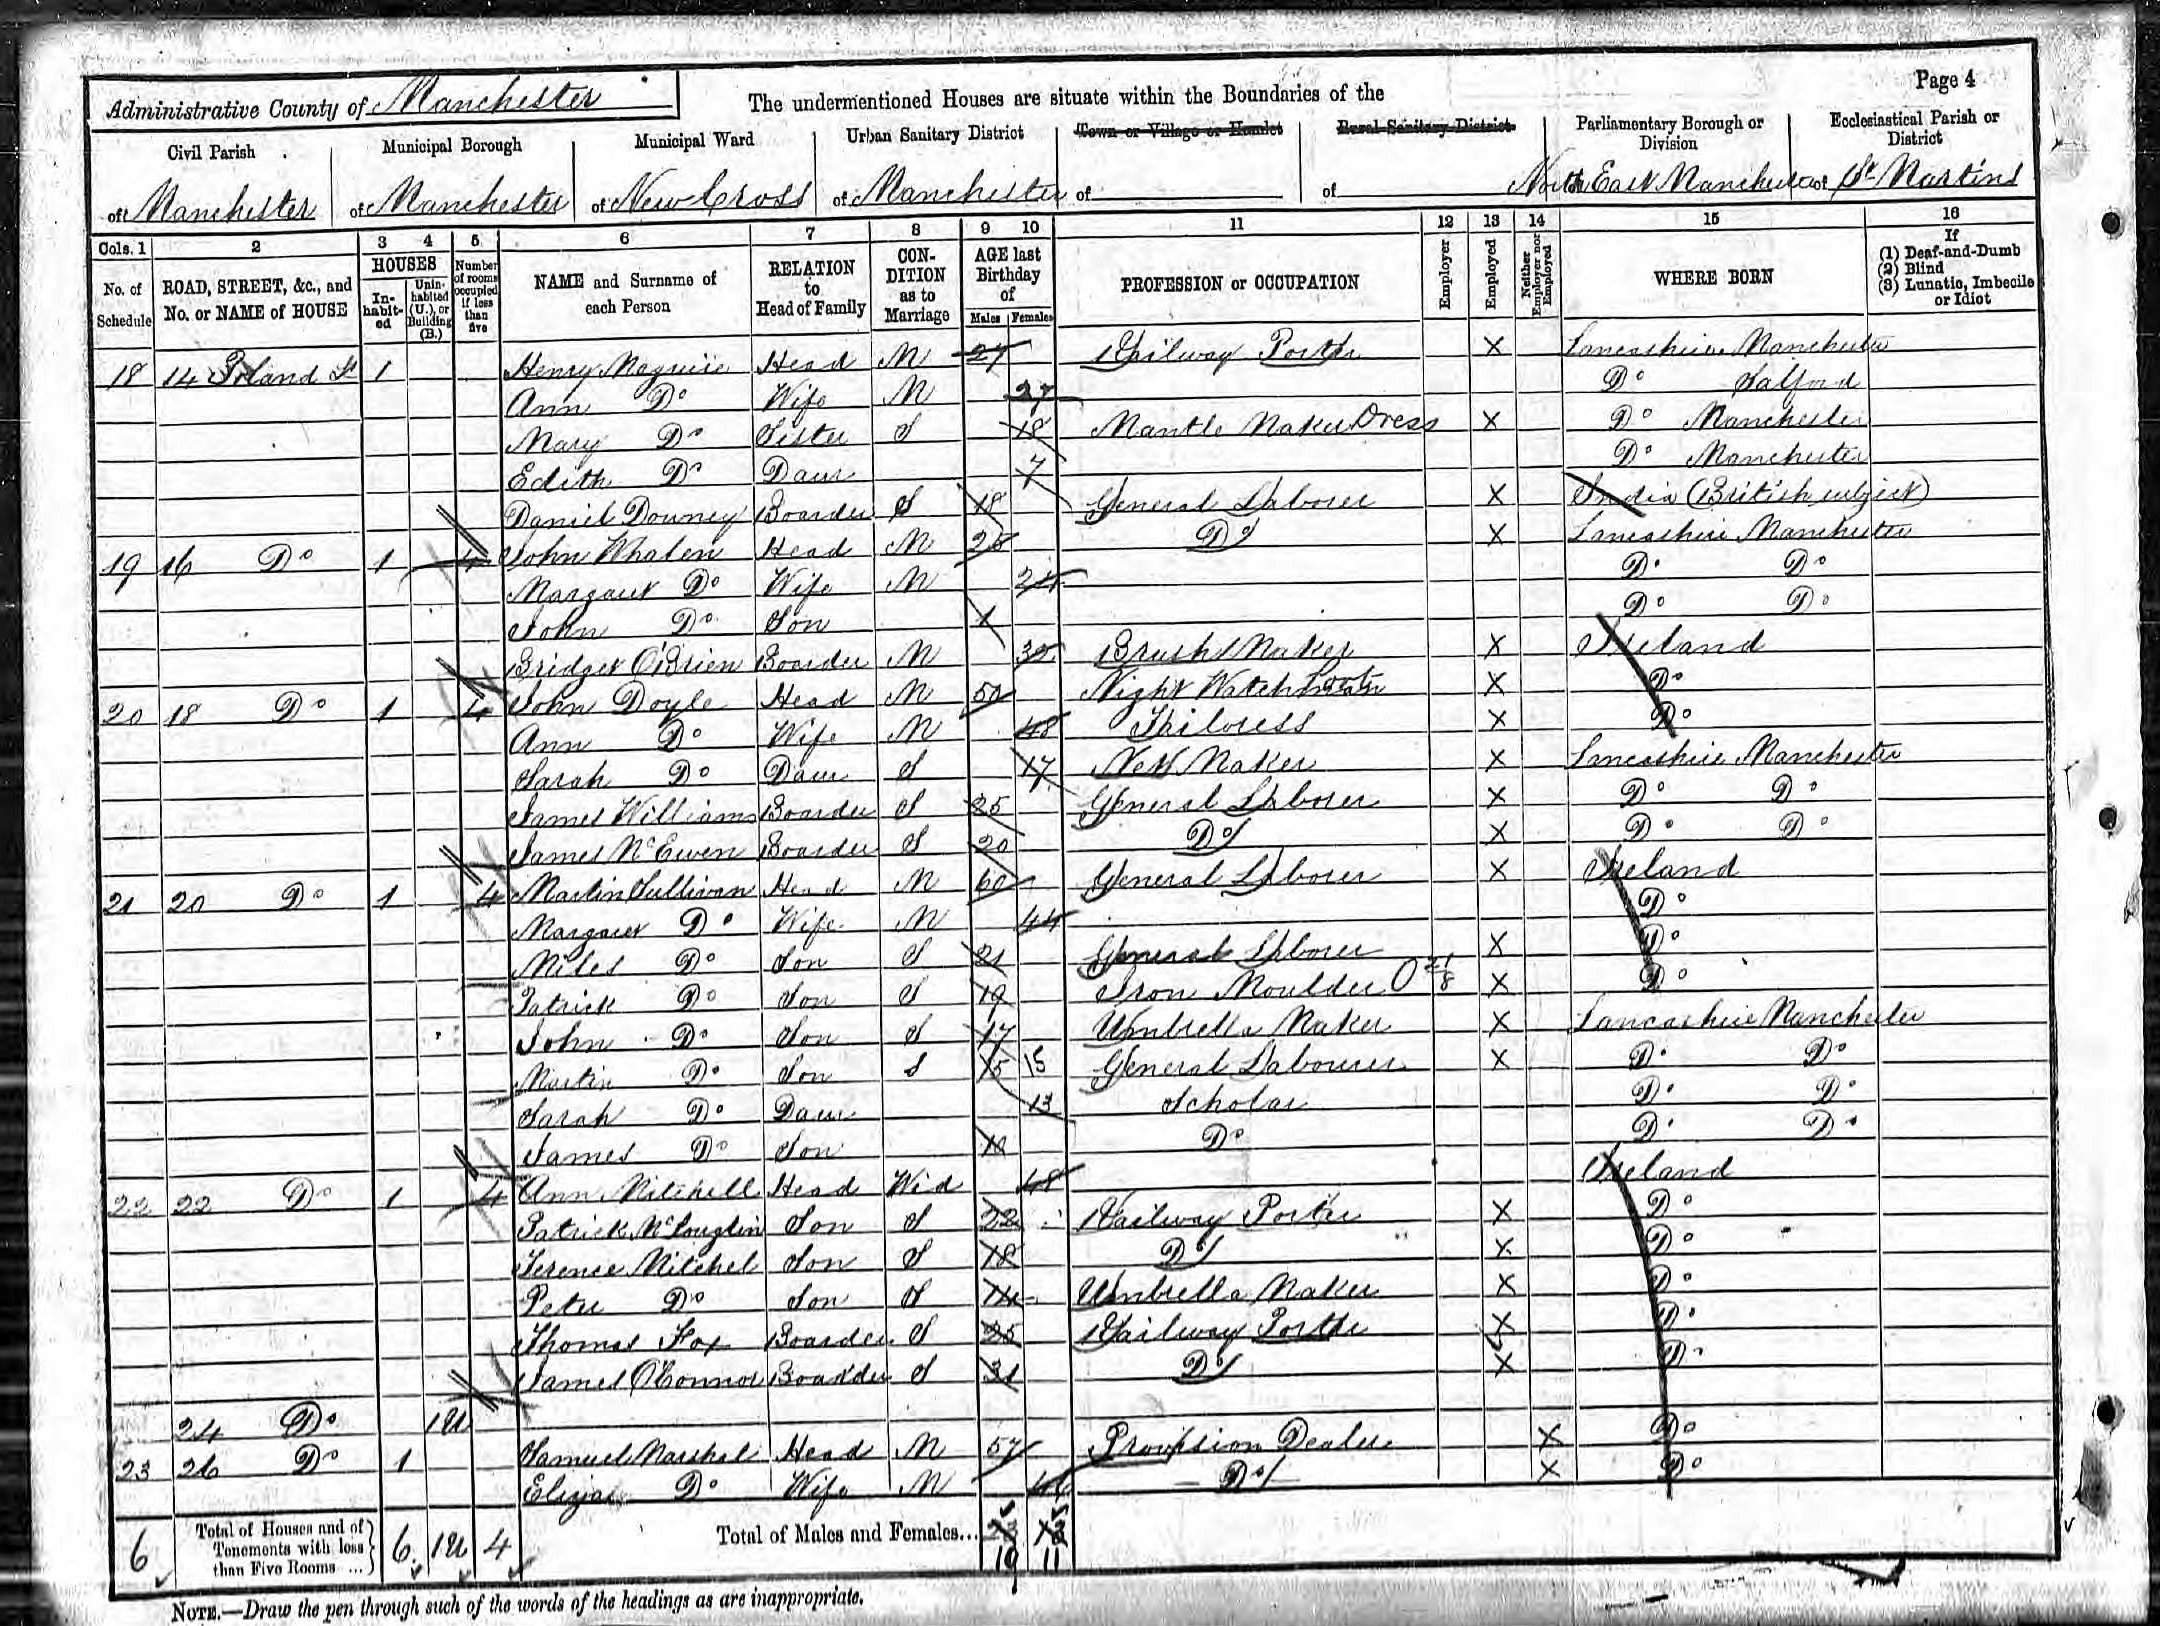 Page 4
Administrative County of Manchester
The undermentioned Houses are situate within the Boundaries of the
Civil Parish
Municipal Borough
Municipal Ward
Urban Sanitary District
Town or Village or Hamlet
Rural Sanitary District
Parliamentary Borough or Division
Ecclesiastical Parish or District
of Manchester
of Manchester
of New Cross
of Manchester
of
of
North East Manchester
of St Martins
Cols. 1 2 3 4 5 6 7 8 9 10 11 12 13 14 15 16
No. of Schedule
ROAD, STREET, &c., and No. or NAME of HOUSE
HOUSES
In-habit-ed
Unin-habited (U.), or Building (B.)
Number of rooms occupied if less than five
NAME and Surname of each Person
RELATION to Head of Family
CON-DITION as to Marriage
AGE last Birthday of
Males Females
PROFESSION or OCCUPATION
Employer
Employed
Neither Employer nor Employed
WHERE BORN
If
(1) Deaf-and-Dumb
(2) Blind
(3) Lunatic, Imbecile or Idiot
18 14 Poland St 1 Henry Maguire Head M 27 Railway Porter X Lancashire Manchester
Ann Do Wife M 27 Do Salford
Mary Do Sister S 18 Mantle Maker Dress X Do Manchester
Edith Do Daur 7 Do Manchester
Daniel Downey Boarder S 18 General Laborer X India (British subject)
19 16 Do 1 4 John Whalen Head M 25 Do X Lancashire Manchester
Margaret Do Wife M 24 Do Do
John Do Son 1 Do Do
Bridget O'Brien Boarder M 30 Brush Maker X Ireland
20 18 Do 1 4 John Doyle Head M 50 Night Watchman X Do
Ann Do Wife M 48 Tailoress X Do
Sarah Do Daur S 17 Net Maker X Lancashire Manchester
James Williams Boarder S 25 General Laborer X Do Do
James McEwen Boarder S 20 Do X Do Do
21 20 Do 1 4 Martin Sullivan Head M 60 General Laborer X Ireland
Margaret Do Wife M 44 Do
Miles Do Son S 21 General Laborer X Do
Patrick Do Son S 19 Iron Moulder O 21/8 X Do
John Do Son S 17 Umbrella Maker X Lancashire Manchester
Martin Do Son S 15 15 General Labourer X Do Do
Sarah Do Daur 13 Scholar Do Do
James Do Son Do Do Do
22 22 Do 1 4 Ann Mitchell Head Wid 48 Ireland
Patrick McLouglin Son S 22 Railway Porter X Do
Terence Mitchel Son S 18 Do X Do
Peter Do Son S 14 Umbrella Maker X Do
Thomas Fox Boarder S 25 Railway Porter X Do
James O'Connor Boarder S 31 Do X Do
24 Do 1U
23 26 Do 1 Samuel Marshal Head M 57 Provision Dealer X Do
Eliza Do Wife M Do X Do
6 Total of Houses and of Tenements with less than Five Rooms ... 6 1U 4 Total of Males and Females... 19 11
NOTE.—Draw the pen through such of the words of the headings as are inappropriate.